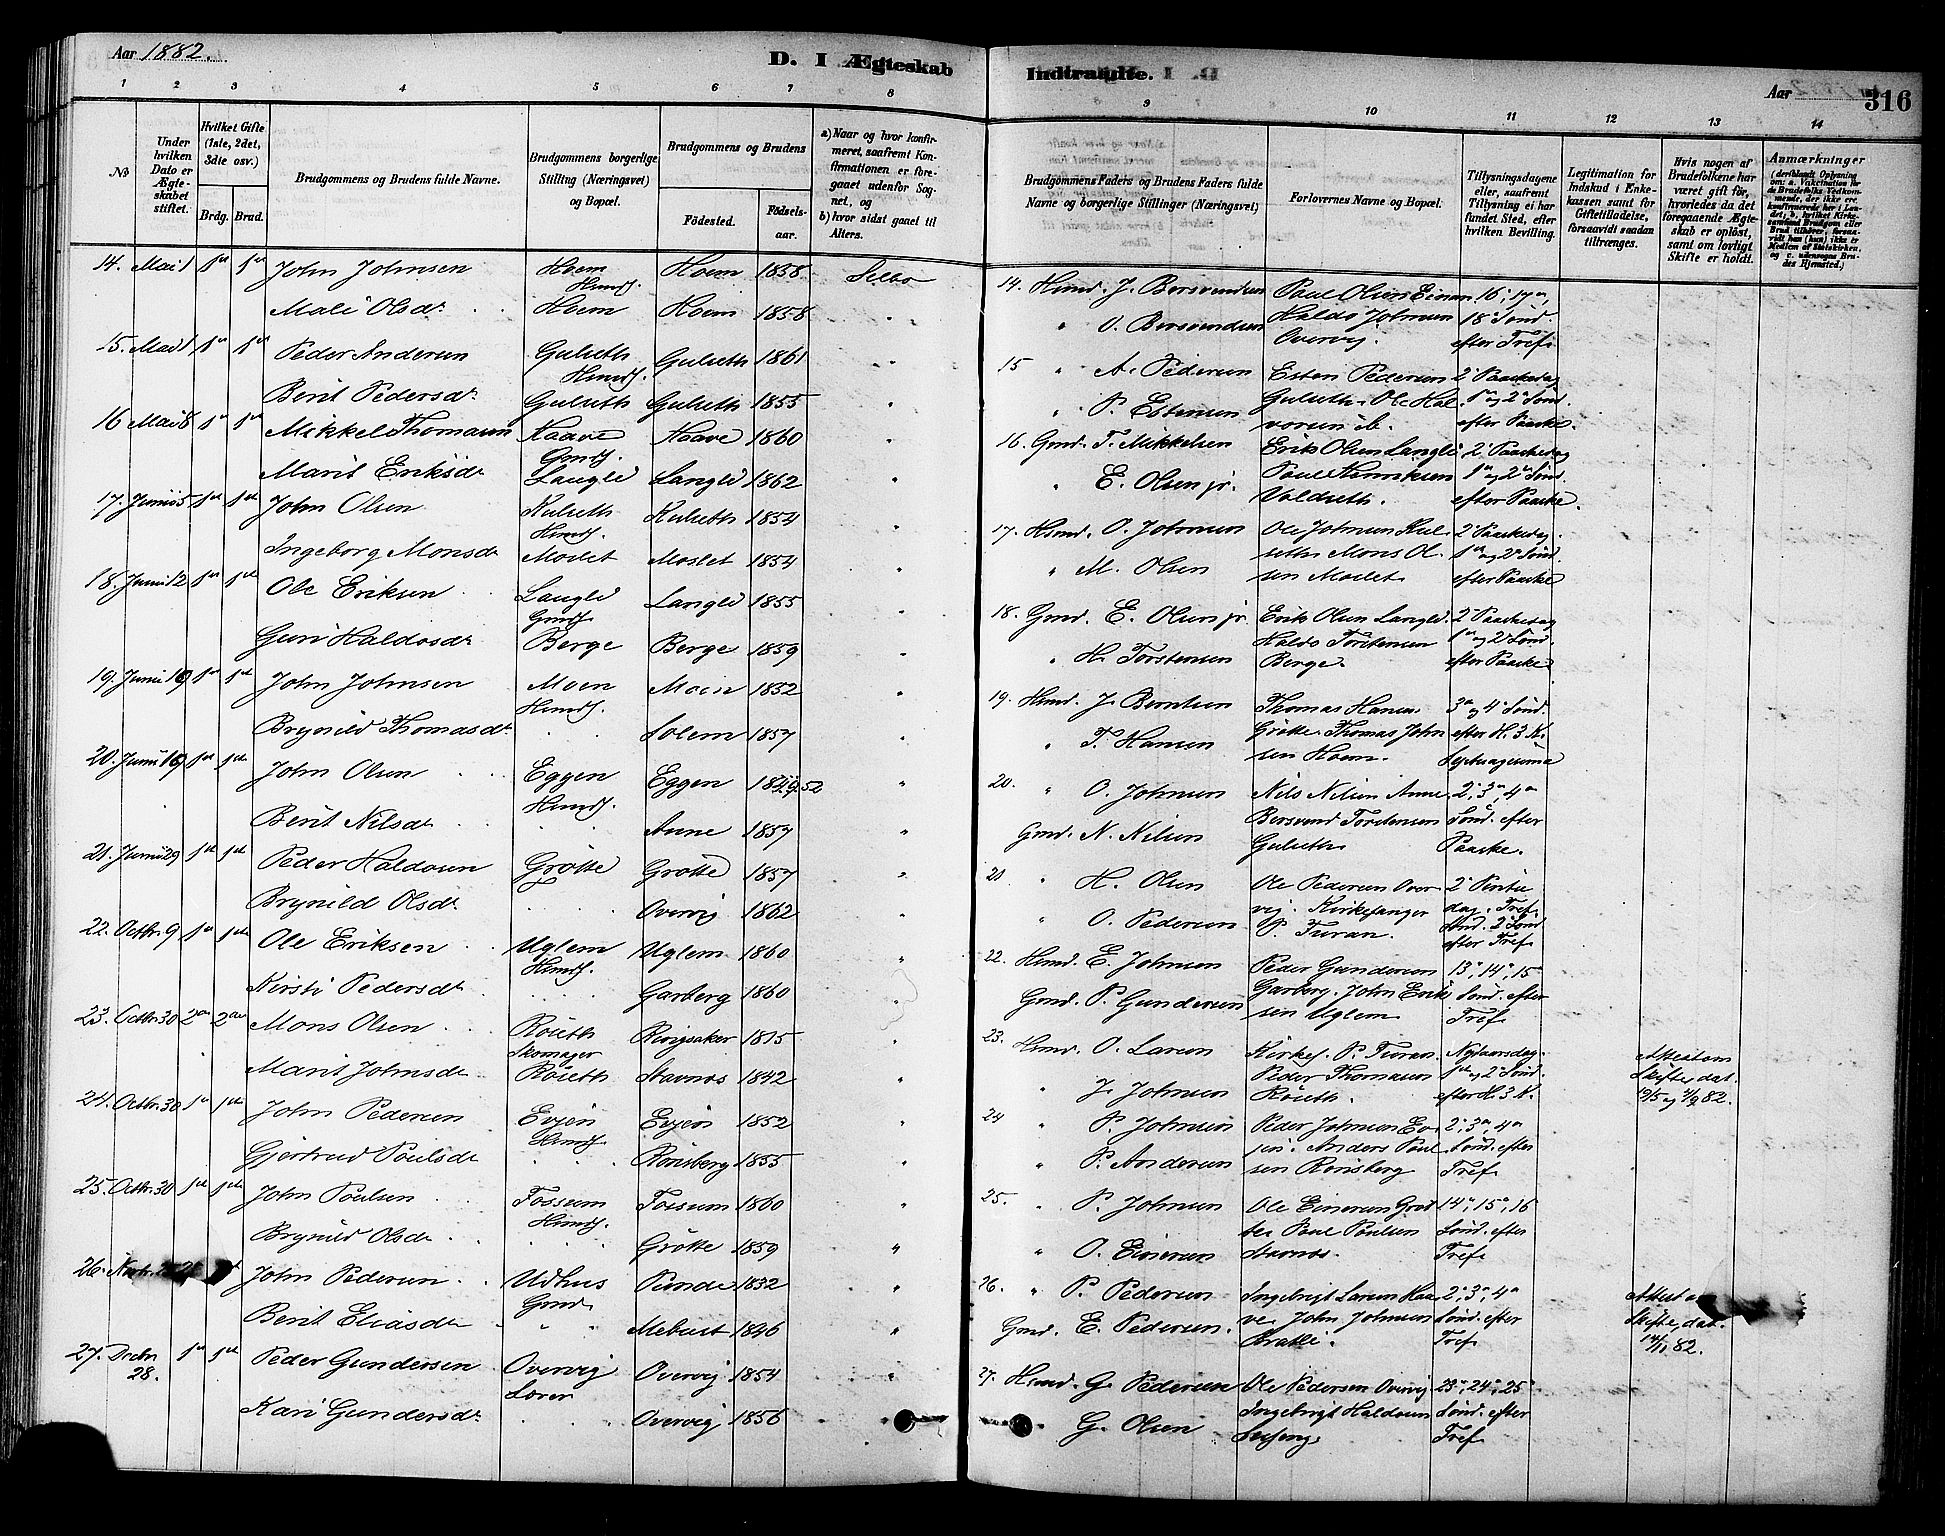 Aar 1882.
D. I Ægteskab
Indtraadte.
Aar
316
1 2 3 4 5 6 7 8
9 10 11 12 13 14
No
Under hvilken Dato er Ægteskabet stiftet.
Hvilket Gifte (1ste, 2det, 3die osv.)
Brdg. Brud.
Brudgommens og Brudens fulde Navne.
Brudgommens borgerlige Stilling (Næringsvei) og Bopæl.
Brudgommens og Brudens
Fødested. Fødselsaar.
a) Naar og hvor konfirmeret, saafremt Konfirmationen er foregaaet udenfor Sognet, og
b) hvor sidst gaaet til Alters.
Brudgommens Faders og Brudens Faders fulde Navne og borgerlige Stillinger (Næringsvei)
Forlovernes Navne og Bopæl.
Tillysningsdagene eller, saafremt Tillysning ei har fundet Sted, efter hvilken Bevilling.
Legitimation for Indskud i Enkekassen samt for Giftetilladelse, forsaavidt saadan tiltrænges.
Hvis nogen af Brudefolkene har været gift før, hvorledes da det foregaaende Ægteskab er opløst, samt om lovligt Skifte er holdt.
Anmærkninger
14. Mai 1 1ste 1ste John Johnsen Hoem Hmd. Hoem 1858 Selbo
Mali Olsdr. Hoem Hoem 1858 "
15. Mai 1 1ste 1ste Peder Andersen Gulseth Hmd. Gulseth 1861 "
Berit Pedersdr. Gulseth Gulseth 1855 "
16 Mai 8 1ste 1ste Mikkel Thomassen Haave Gmd. Haave 1860 "
Marit Eriksdr. Langli Langli 1862 "
17. Juni 5 1ste 1ste John Olsen Kulseth Hmd. Kulseth 1854 "
Ingeborg Monsdr. Moslet Moslet 1854 "
18. Juni 12 1ste 1ste Ole Eriksen Langli Gmd. Langli 1855 "
Guri Haldosdr. Berge Berge 1859 "
19. Juni 19 1ste 1ste John Johnsen Moen Hmd. Moen 1852 "
Brynild Thomasdr. Solem 1857 "
20. Juni 19 1ste 1ste John Olsen Eggen Hmd. Eggen 52 "
Berit Nilsdr. Aune 1857 "
21. Juni 29 1ste 1ste Peder Haldosen Grøtte Grøtte 1857 "
Brynild Olsdr. Overvig 1862 "
22. Octbr. 9 1ste 1ste Ole Eriksen Uglem Hmd. Uglem 1860 "
Kirsti Pedersdr. Garberg 1860 "
23. Octbr. 30 2den 2den Mons Olsen Røseth Skomager Ringsaker 1815 "
Marit Johnsdr. Røseth Stavnos 1842 "
24. Octbr. 30 1ste 1ste John Pedersen Evjen Hmd. Evjen 1852 "
Gjertrud Poulsdr. Rønsberg 1855 "
25. Octbr. 30 1ste 1ste John Poulsen Fossum Hmd. Fossum 1860 "
Brynild Olsdr. Grøtte 1859 "
26. John Pedersen Udhus Gmd. 1832 "
Berit Eliasdr. Mebust 1846 "
27. Decbr. 28. 1ste 1ste Peder Gundersen Overvig Overvig 1854 "
Kari Gundersdr. Overvig 1856 "
14. Hmd. J. Bersvendsen Paul Olsen Einan 16de, 17de,
" O. Bersvendsen Haldo Johnsen Overvig. 18de Sønd. efter Tref.
15 " A. Pedersen Esten Pedersen 2. Paaskedag
" P. Estensen Gulseth. Ole Halvorsen ib. 1ste og 2. Sønd. efter Paaske.
16. Gmd. T. Mikkelsen Erik Olsen Langli 2. Paaskedag
" E. Olsen jr. Paul Henriksen Valdseth. 1ste og 2. Sønd. efter Paaske.
17. Hmd. O. Johnsen Ole Johnsen Kulseth 2. Paaskedag
" M. Olsen Mons Olsen Moslet 1ste og 2. Sønd. efter Paaske
18. Gmd. E. Olsen jr. Erik Olsen Langli. 2. Paaskedag
" H. Torstensen Haldo Torstensen Berge. 1ste og 2. Sønd. efter Paaske
19. Hmd. J. Berntsen Thomas Hansen Grøtte. 3die og 4. Sønd. efter H. 3 K.
" T. Hansen Thomas Johnsen Hoem. Septuagesima
20. " O. Johnsen Nils Nilsen Aune 2., 3die, 4de
Gmd. N. Nilsen Bersvend Torstensen Gulseth. Sønd. efter Paaske.
21 " H. Olsen Ole Pedersen Overvig. 2. Pintsedag, Tref.
" O. Pedersen Kirkesanger P. Turan. Sønd. 2. Sønd. efter Tref.
22. Hmd. E. Johnsen Peder Gundersen Garberg. 13., 14., 15.
Gmd. P. Gundersen John Eriksen Uglem Sønd. efter Tref.
23. Hmd. O. Larsen Kirkes. P. Turan. Nytaarsdag.
" J. Johnsen Peder Thomassen Røseth. 1ste og 2. Sønd. efter H. 3 K.
Attest om Skifte, dat. 82.
24 " P. Johnsen Peder Johnsen Evjen. 2., 3die, 4de
" P. Andersen Anders Poulsen Rønsberg Sønd. efter Tref.
25. " P. Johnsen Ole Einersen Grøtte. 14., 15., 16
" O. Einersen Paul Poulsen Stavnos. Sønd. efter Tref.
26. " P. Pedersen Ingebrigt Larsen Haave. 2., 3., 4de
Gmd. E. Pedersen. John Johnsen Bratli. Sønd. efter Tref.
Attest Skifte, dat. 14/11 82.
27. Hmd. G. Pedersen Ole Pedersen Overvig 23., 24., 25
" G. Olsen Ingebrigt Haldosen Sønd. efter Tref.